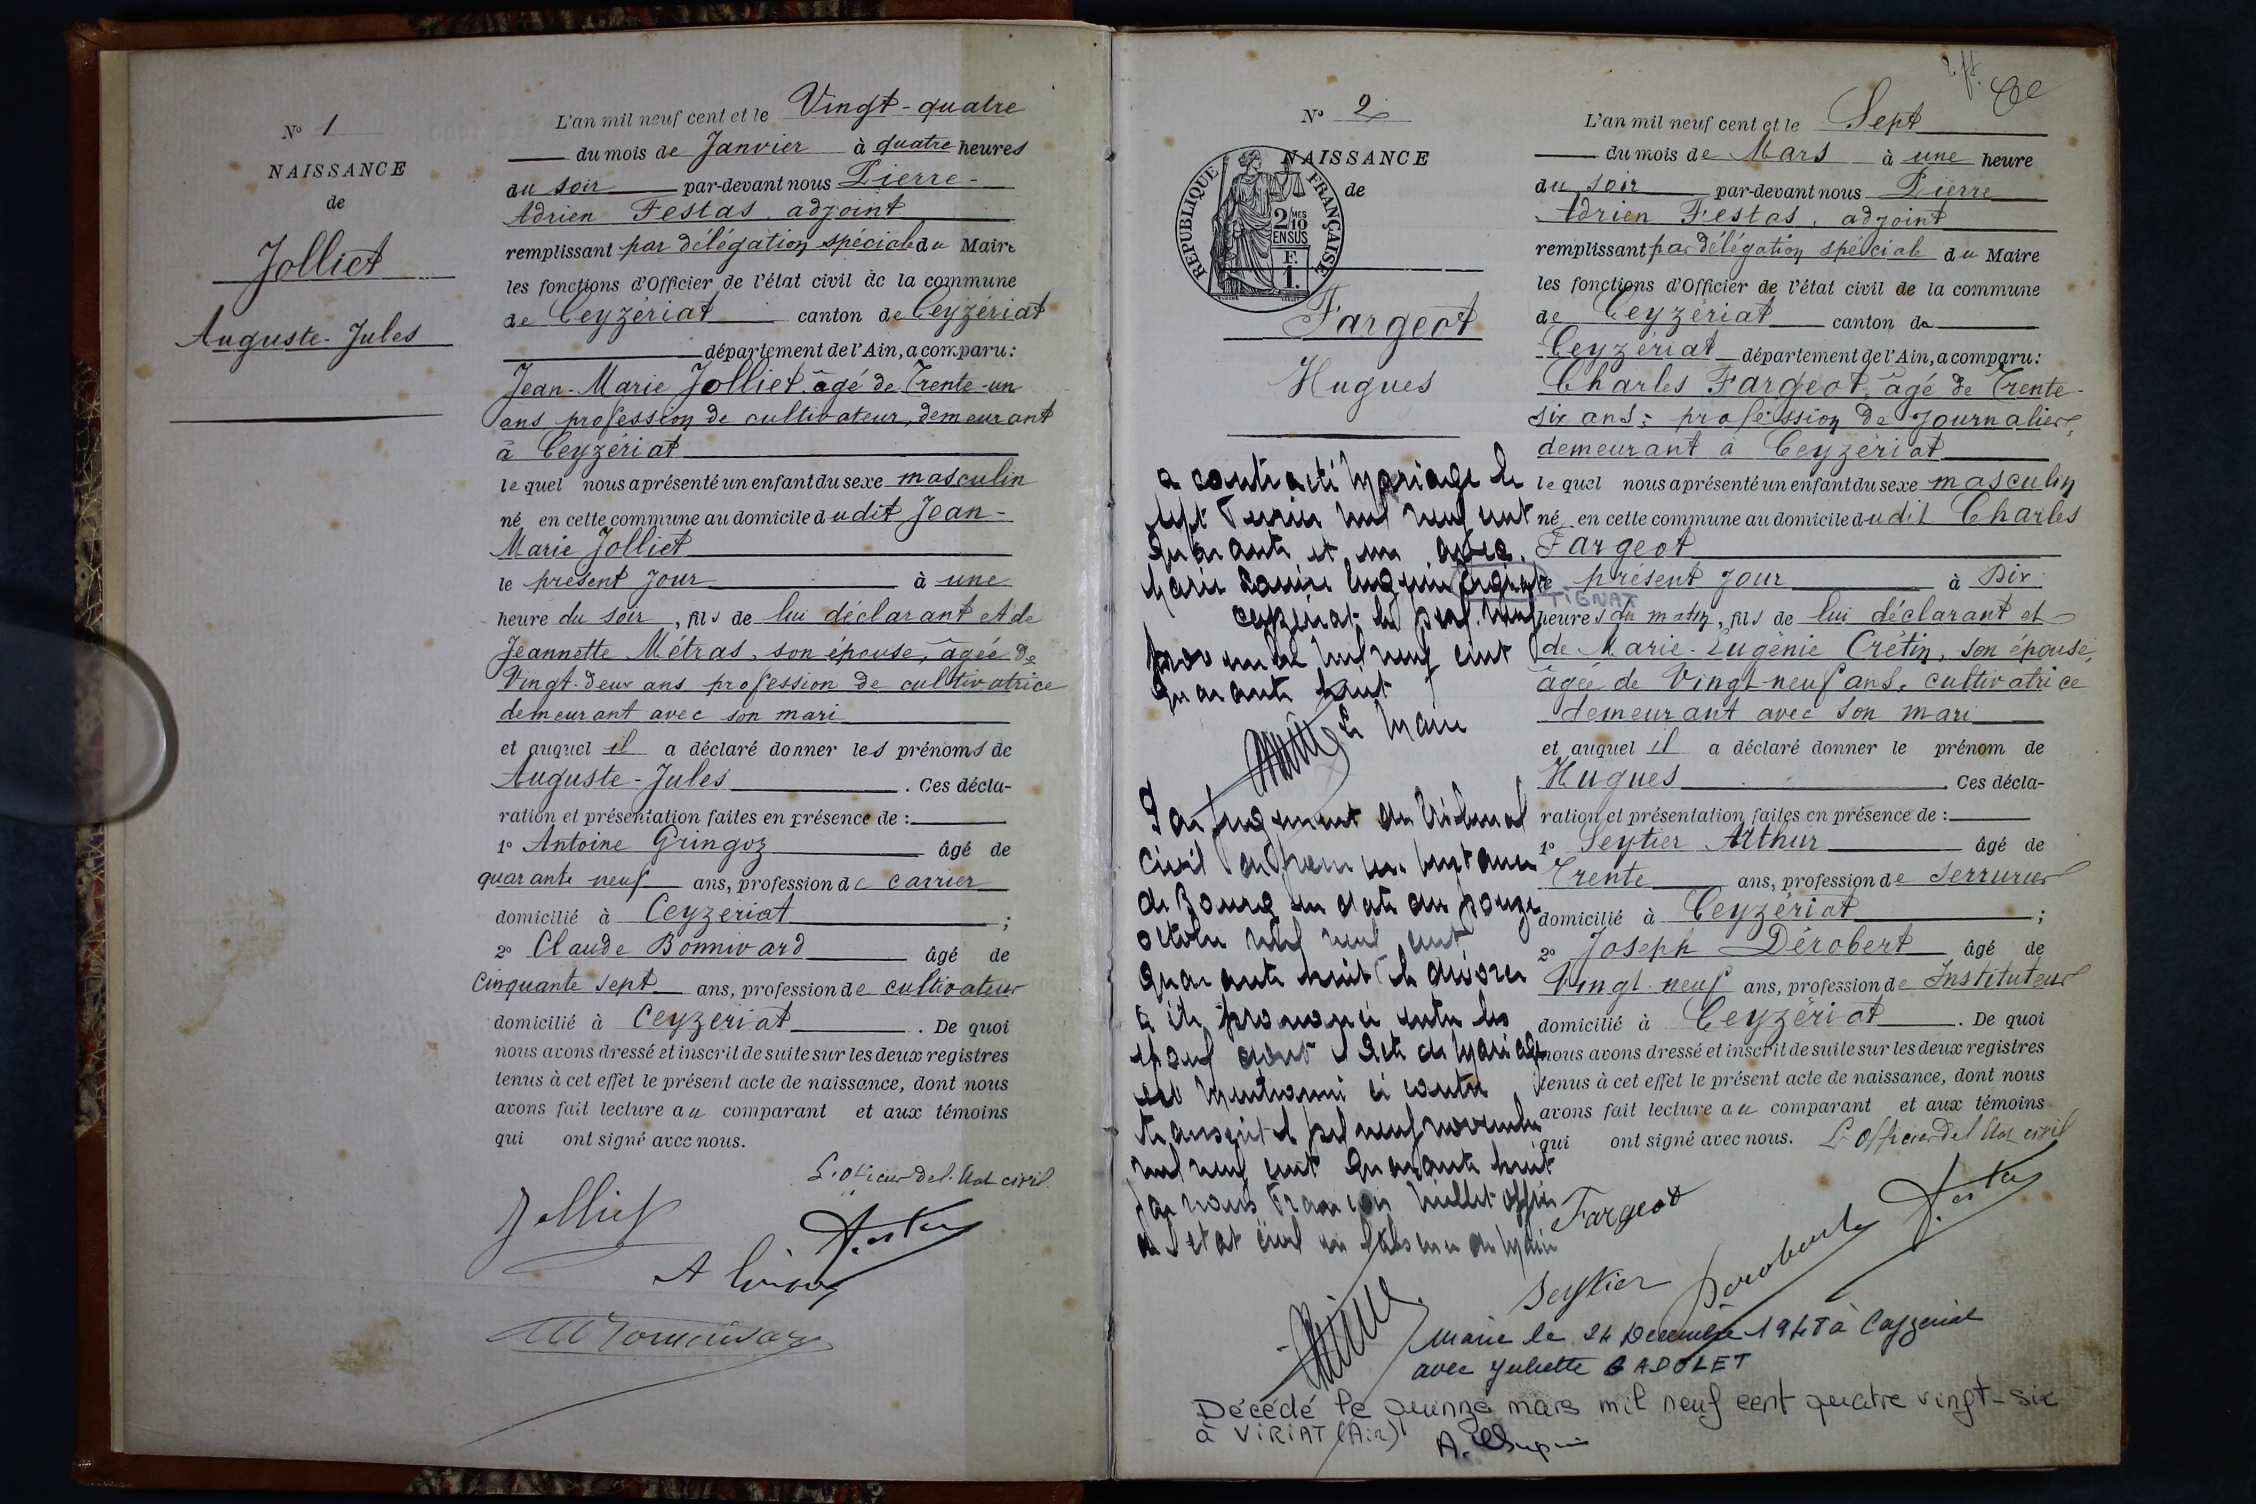 N° 1
NAISSANCE
de
Jolliet
Auguste-Jules
L'an mil neuf cent et le Vingt-quatre
du mois de Janvier à quatre heures
du soir par-devant nous Pierre-
Adrien Festas, adjoint
remplissant par délégation spéciale du Maire
les fonctions d'Officier de l'état civil de la commune
de Ceyzériat canton de Ceyzériat
département de l'Ain, a comparu :
Jean-Marie Jolliet âgé de Trente-un
ans profession de cultivateur, demeurant
à Ceyzériat
le quel nous a présenté un enfant du sexe masculin
né en cette commune au domicile dudit Jean-
Marie Jolliet
le présent jour à une
heure du soir, fils de lui déclarant et de
Jeannette Métras, son épouse, âgée de
Vingt-deux ans profession de cultivatrice
demeurant avec son mari
et auquel il a déclaré donner les prénoms de
Auguste-Jules. Ces décla-
ration et présentation faites en présence de :
1° Antoine Gringoz âgé de
quarante neuf ans, profession de carrier
domicilié à Ceyzériat ;
2° Claude Bonnivard âgé de
Cinquante sept ans, profession de cultivateur
domicilié à Ceyzériat. De quoi
nous avons dressé et inscrit de suite sur les deux registres
tenus à cet effet le présent acte de naissance, dont nous
avons fait lecture au comparant et aux témoins
qui ont signé avec nous.
L'officier de l'état civil
Jolliet
N° 2
NAISSANCE
de
RÉPUBLIQUE FRANÇAISE
2/10 MES
EN SUS
F.
1.
Fargeot
Hugues
a contracté mariage le
sept mil neuf cent
quarante et un avec
Marie
TIGNAT
Ceyzériat le neuf
novembre mil neuf cent
quarante huit
Le Maire
Par jugement du Tribunal
civil de première instance
de Bourg en date du
octobre mil neuf cent
quarante huit le divorce
a été prononcé entre les
époux dont l'acte de mariage
est mentionné ci contre
transcrit le neuf novembre
mil neuf cent quarante huit
par nous officier
de l'état civil en l'absence du Maire
L'an mil neuf cent et le Sept
du mois de Mars à une heure
du soir par-devant nous Pierre
Adrien Festas, adjoint
remplissant par délégation spéciale du Maire
les fonctions d'Officier de l'état civil de la commune
de Ceyzériat canton de
Ceyzériat département de l'Ain, a comparu :
Charles Fargeot, âgé de Trente-
six ans, profession de Journalier,
demeurant à Ceyzériat
le quel nous a présenté un enfant du sexe masculin
né en cette commune au domicile dudit Charles
Fargeot
le présent jour à Dix
heures du matin, fils de lui déclarant et
de Marie-Eugénie Crétin, son épouse,
âgée de Vingt-neuf ans, cultivatrice
demeurant avec son mari
et auquel il a déclaré donner le prénom de
Hugues. Ces décla-
ration et présentation faites en présence de :
1° Seytier Arthur âgé de
Trente ans, profession de Serrurier
domicilié à Ceyzériat ;
2° Joseph Dérobert âgé de
Vingt neuf ans, profession de Instituteur
domicilié à Ceyzériat. De quoi
nous avons dressé et inscrit de suite sur les deux registres
tenus à cet effet le présent acte de naissance, dont nous
avons fait lecture au comparant et aux témoins
qui ont signé avec nous. L'officier de l'état civil
Fargeot
Seytier Dérobert
Marié le 24 Décembre 1948 à Ceyzériat
avec Juliette GADOLET
Décédé le quinze mars mil neuf cent quatre vingt-six
à VIRIAT (Ain)